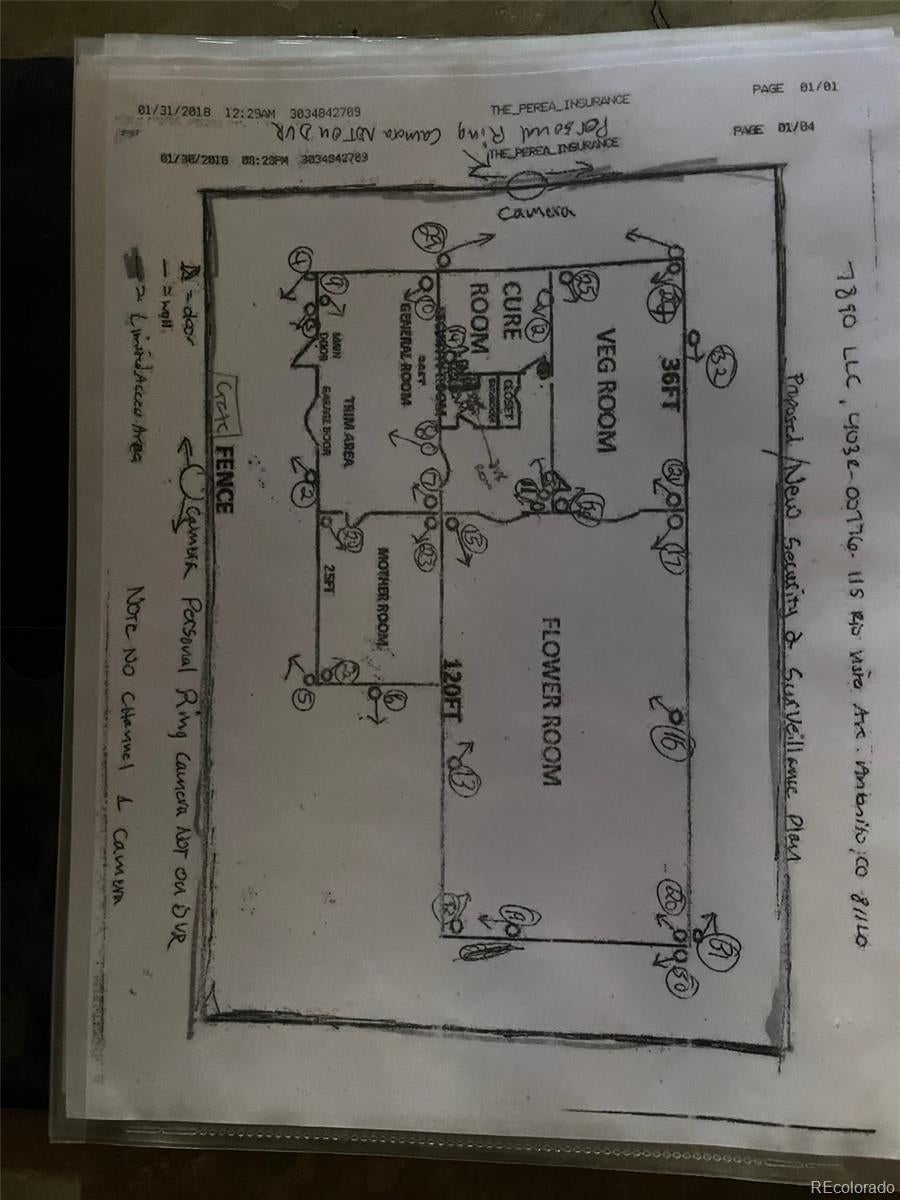 PAGE 01/01
01/31/2018 12:29AM 3034842709 THE_PEREA_INSURANCE
PAGE 01/04
01/30/2018 08:28PM 3034842709 THE_PEREA_INSURANCE
Personal Ring Camera NOT ON DVR
Camera
7890 LLC, 403R-00776. 115 Rio Vista Ave. Antonito, CO 81140
Proposed/New Security & Surveillance Plan
36FT
32
35
VEG ROOM
CURE
ROOM
12
CLOSET
14
10
GENERAL ROOM
4
9
MAIN
DOOR
TRIM AREA
GARAGE DOOR
2
7
11
17
15
23
25FT
MOTHER ROOM
5
6
FLOWER ROOM
120FT
16
13
31
30
Gate
FENCE
= door
- = wall
= Limited Access Area
Camera Personal Ring Camera Not on DVR
Note No Channel 1 Camera
REcolorado